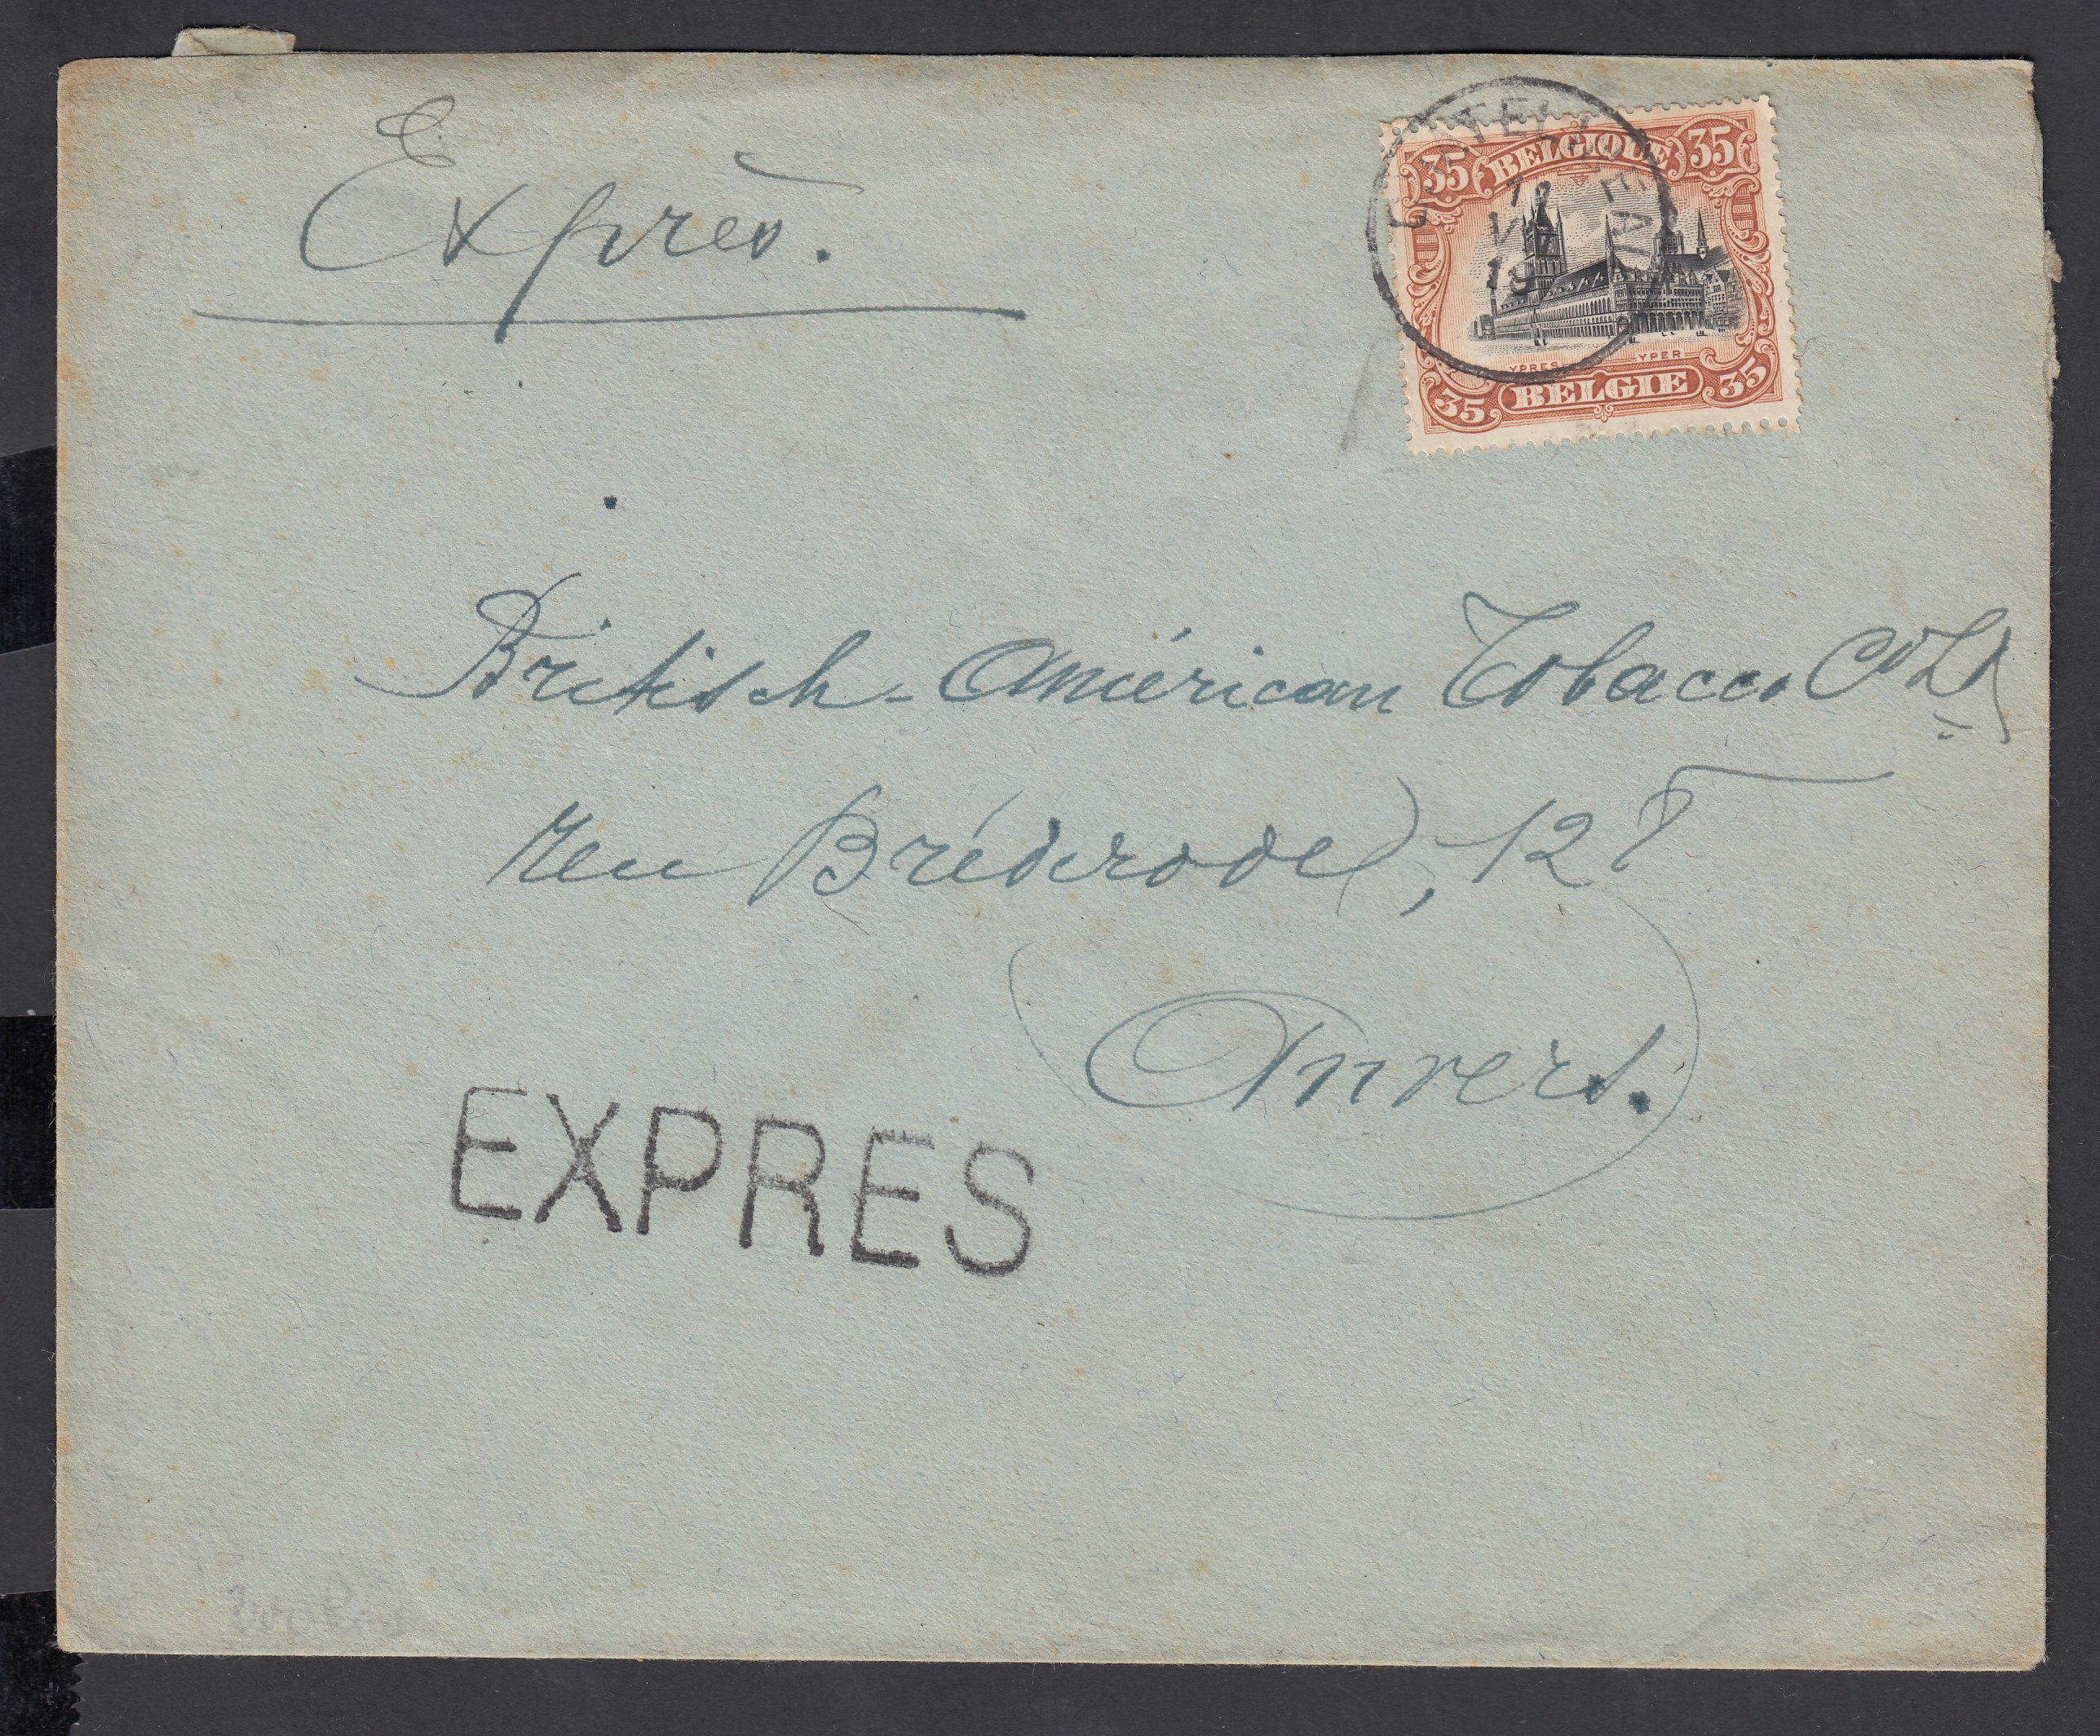 Exprès.
35 BELGIQUE 35
12
VII
19
YPRES YPER
35 BELGIE 35
British-Américan Tobacco Co Ld
Reu Bréderode, 127
Anvers.
EXPRES